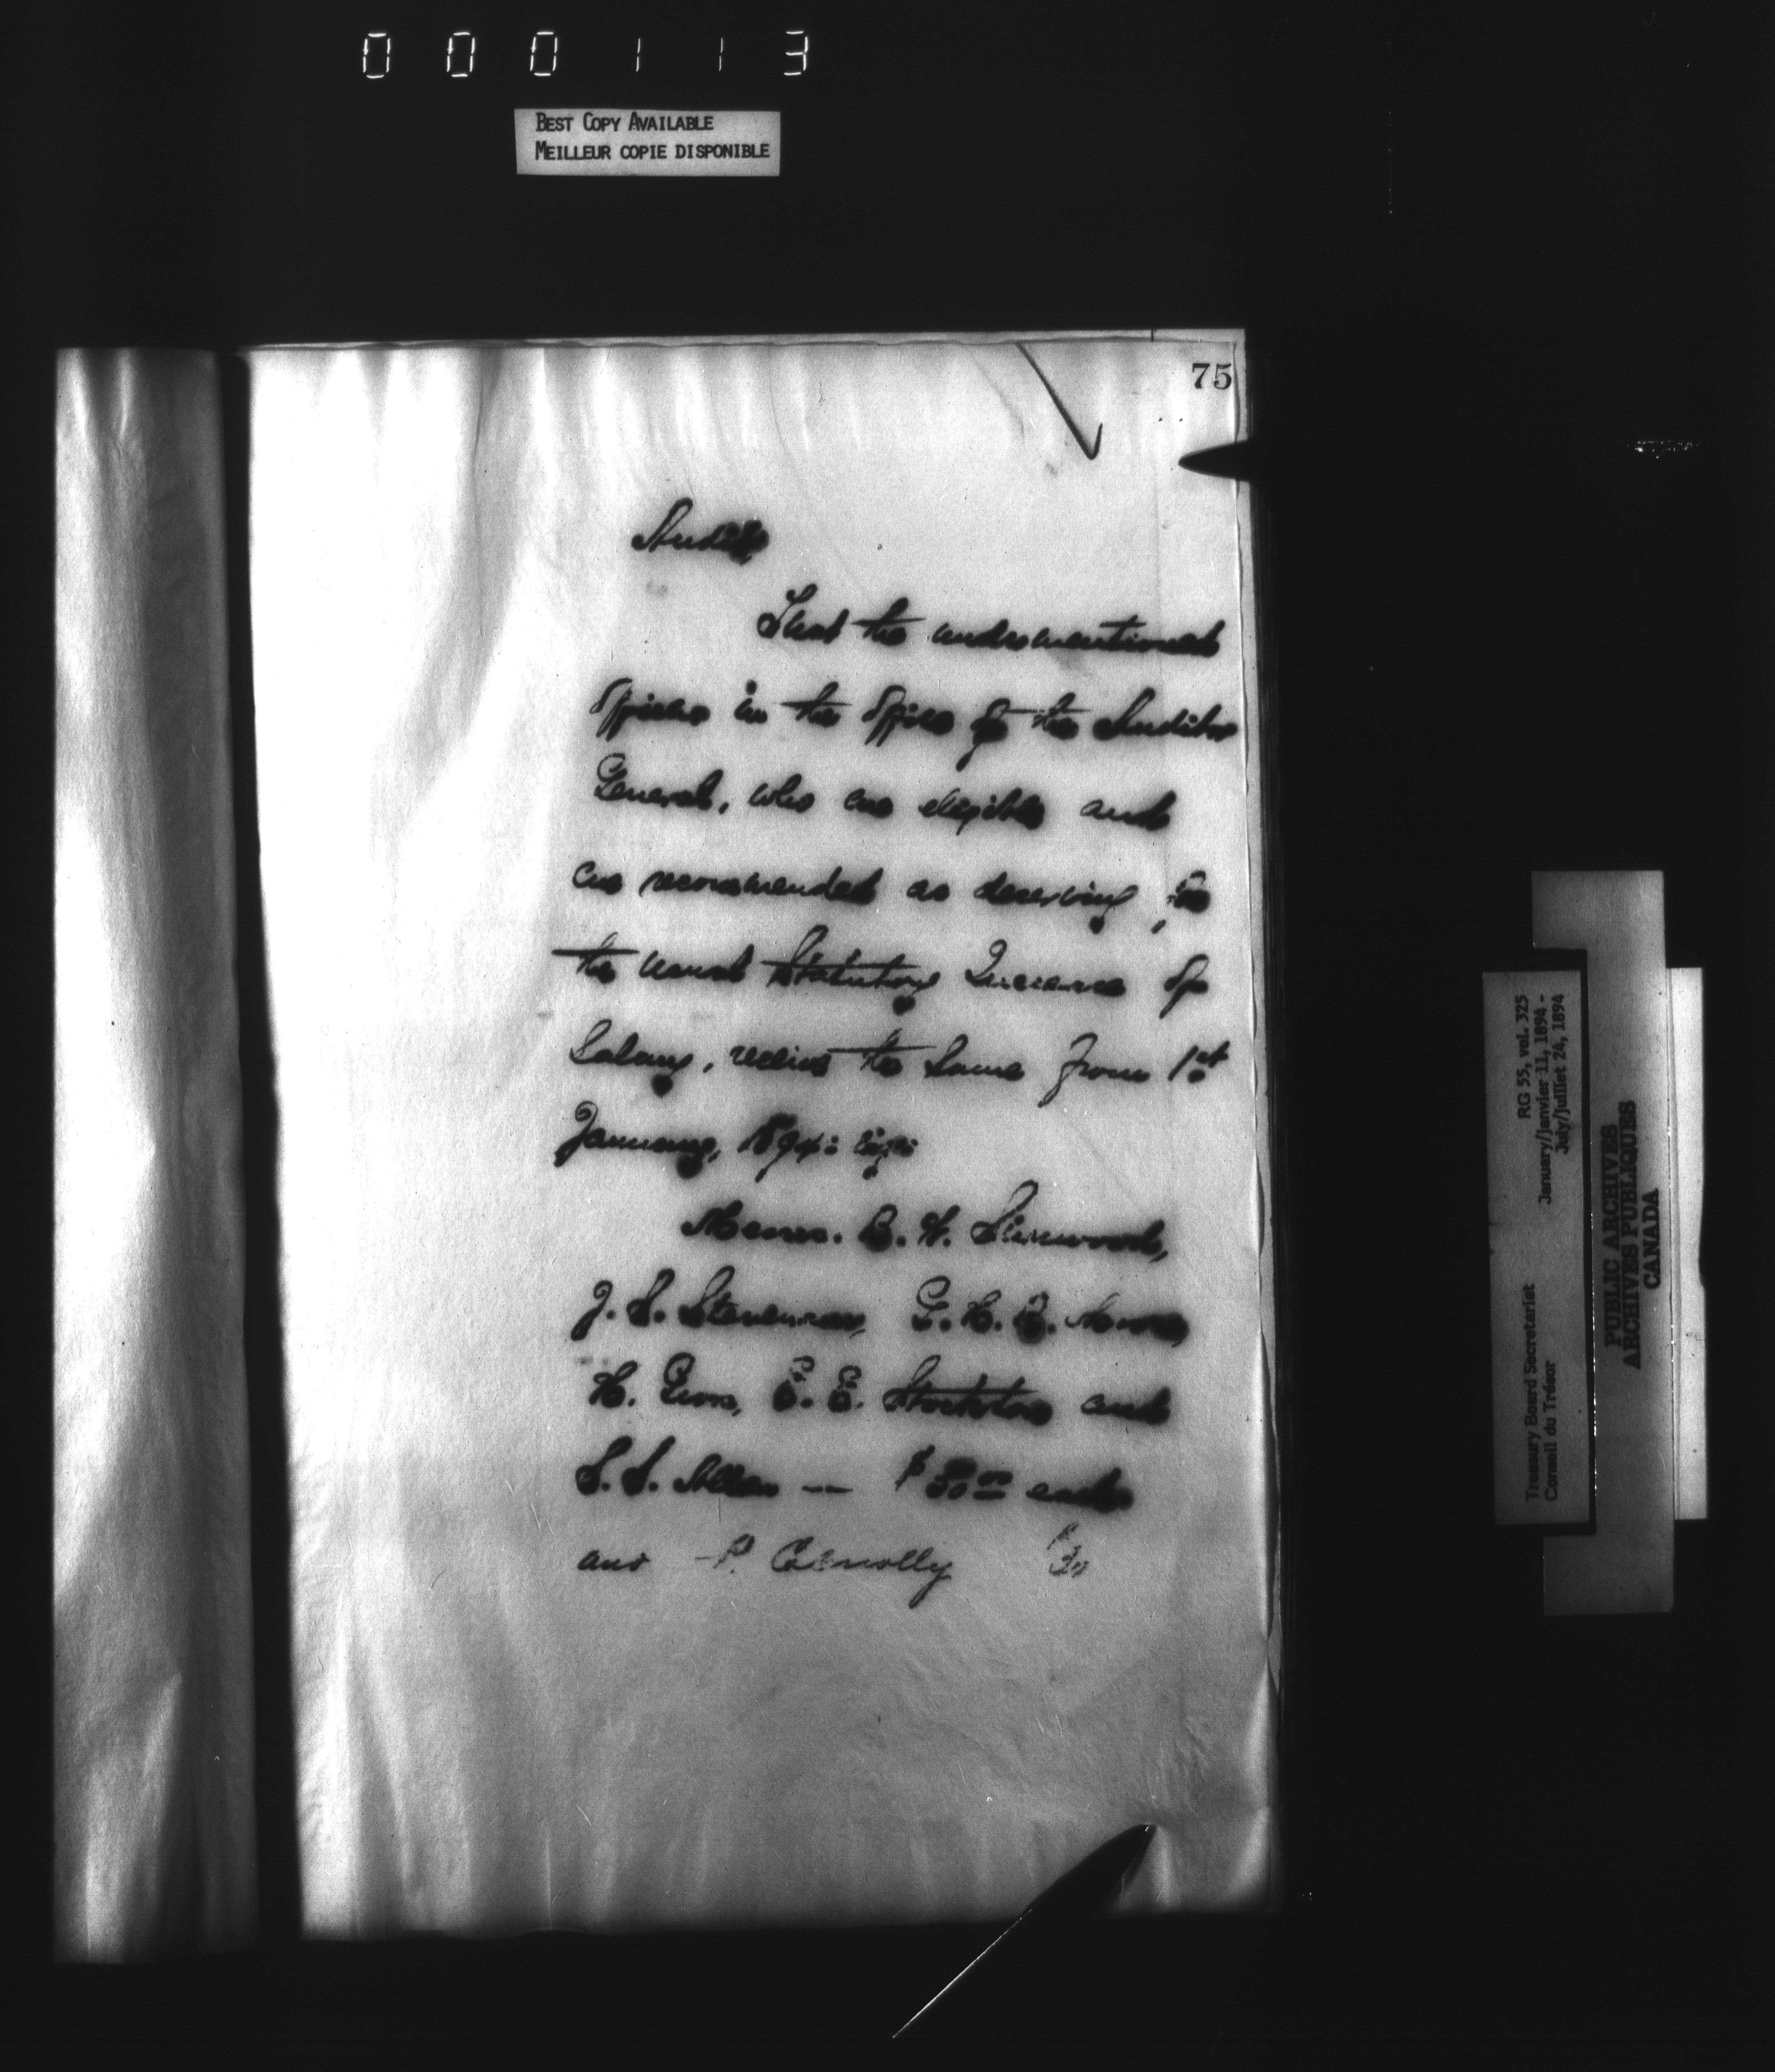 000113
BEST COPY AVAILABLE
MEILLEUR COPIE DISPONIBLE
75
Audit
That the undermentioned
Officers in the Office of the Auditor
General, who are eligible and
are recommended as deserving, for
the usual Statutory Increase of
Salary, receive the same from 1st
January, 1894: viz:
Messrs. E. W.
J. S. Stevenson, G. H. B. Moore,
H. Gross, E. E. Stockton and
S. S. Allan — $50.00 each
and P. Connolly
RG 55, vol. 325
January/janvier 11, 1894 -
July/juillet 24, 1894
Treasury Board Secretariat
Conseil du Trésor
PUBLIC ARCHIVES
ARCHIVES PUBLIQUES
CANADA